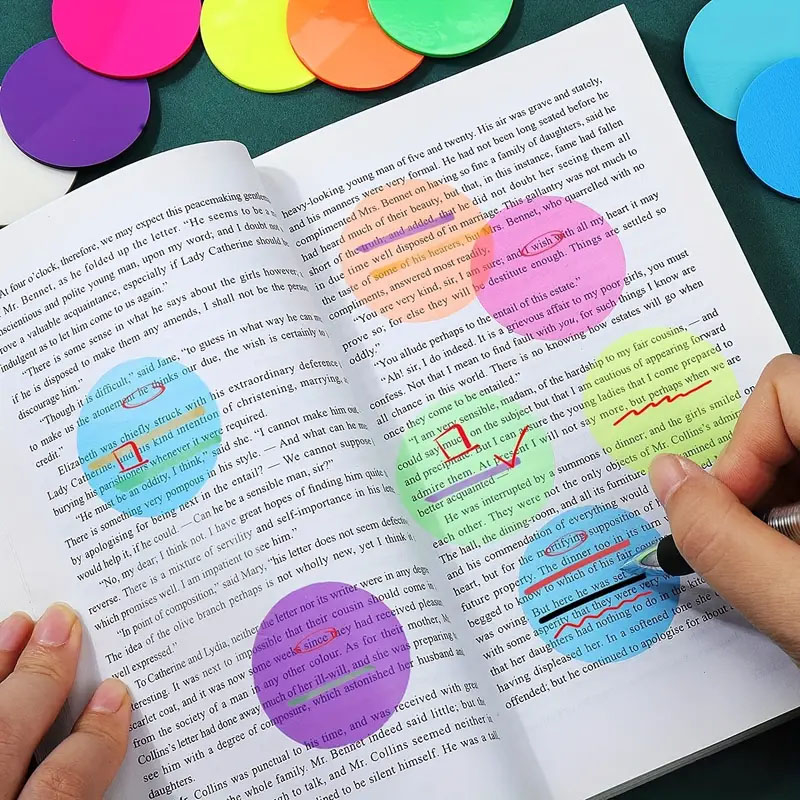 At four o'clock, therefore, we may expect this peacemaking
Mr. Bennet, as he folded up the letter. "He seems to be a
and polite young man, upon my word; and I doubt not
a valuable acquaintance, especially if Lady Catherine should be
indulgent as to let him come to us again."
"There is some sense in what he says about the girls however,
if he is disposed to make them any amends, I shall not be the person
discourage him."
"Though it is difficult," said Jane, "to guess in what way he can
to make us the atonement he thinks our due, the wish is certainly
credit."
Elizabeth was chiefly struck with extraordinary deference
Lady Catherine, and kind intention of christening, marrying,
burying his parishioners whenever it were required.
"He must be an oddity, I think," said she. "I cannot make him out.
There is something very pompous in his style. — And what can he
by apologising for being next in the entail? — We cannot suppose
would help it, if he could. — Can he be a sensible man, sir?"
"No, my dear, I think not. I have great hopes of finding him quite
reverse. There is a mixture of servility and self-importance in his
which promises well. I am impatient to see him."
"In point of composition," said Mary, "his letter does not seem
The idea of the olive branch perhaps is not wholly new, yet I think
well expressed."
To Catherine and Lydia, neither the letter nor its writer were in any
It was next to impossible that their cousin should come in
scarlet coat, and it was now some weeks since they had received
from the society of a man in any other colour. As for their mother,
Collins's letter had done away much of her ill-will, and she was preparing
see him with a degree of composure, which astonished her husband
daughters.
Mr. Collins was punctual to his time, and was received with
the whole family. Mr. Bennet indeed said little; but the
to talk, and Mr. Collins seemed neither
to be silent himself. He was a
heavy-looking young man of five and twenty. His air was grave and stately,
and his manners were very formal. He had not been long seated before he
complimented Mrs. Bennet on having so fine a family of daughters, said he
had heard much of their beauty, but that, in this instance, fame had fallen
short of the truth; and added, that he did not doubt her seeing them all
in due time well disposed of in marriage. This gallantry was not much to
the taste of some of his hearers, but Mrs. Bennet, who quarrelled with no
compliments, answered most readily,
"You are very kind, sir, I am sure; and I wish with all my heart it may
prove so; for else they will be destitute enough. Things are settled so
oddly."
"You allude perhaps to the entail of this estate."
"Ah! sir, I do indeed. It is a grievous affair to my poor girls, you must
confess. Not that I mean to find fault with you, for such things I know are
all chance in this world. There is no knowing how estates will go when
once they come to be entailed."
"I am very sensible, madam, of the hardship to my fair cousins, — and
could say much on the subject but that I am cautious of appearing forward
and precipitate. But I can assure the young ladies that I come prepared to
admire them. At present I will not say more, but perhaps when we are
better acquainted —"
He was interrupted by a summons to dinner; and the girls smiled on
each other. They were not the only objects of Mr. Collins's
the hall, the dining-room, and all its furniture examined and
and his commendation of everything would
heart, but for the mortifying supposition of
future property. The dinner too in its turn
begged to know to which of his fair
was owing. But here he was set
with some asperity that they were very
that her daughters had nothing to do in the
having displeased her. In a softened tone she
offended, but he continued to apologise for about